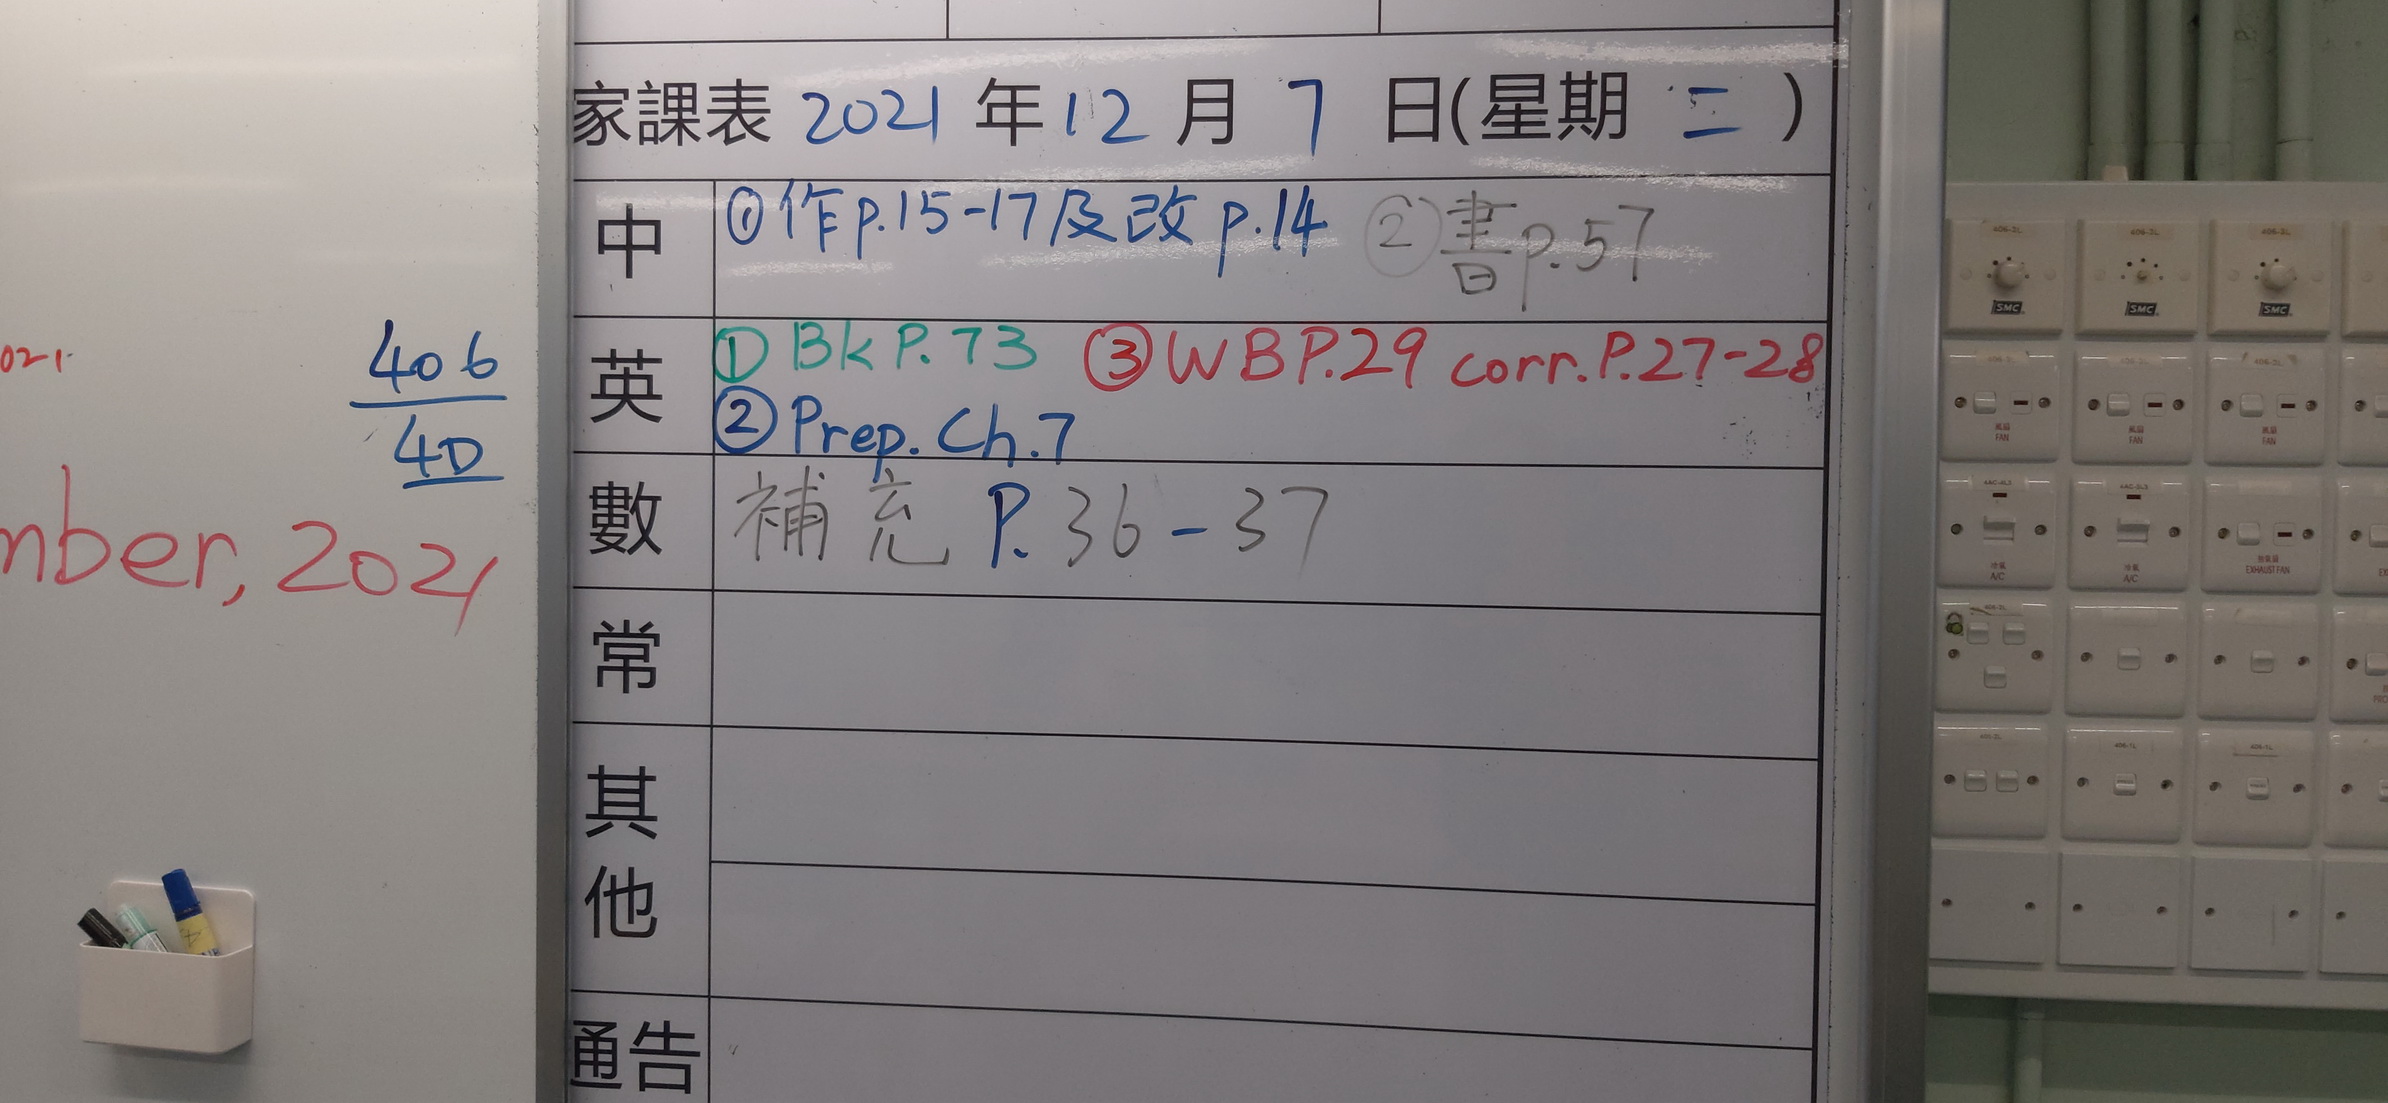 021.
406
4D
mber, 2021
家課表 2021 年 12 月 7 日(星期 二 )
中 ①作p.15-17及改p.14 ②書p.57
英 ①BK P.73 ③WB P.29 corr. P.27-28
②Prep. Ch.7
數 補充 P.36-37
常
其他
通告
406-2L
406-3L
406-3L
SMC
SMC
SMC
風扇
FAN
風扇
FAN
風扇
FAN
冷氣
A/C
冷氣
A/C
抽氣扇
EXHAUST FAN